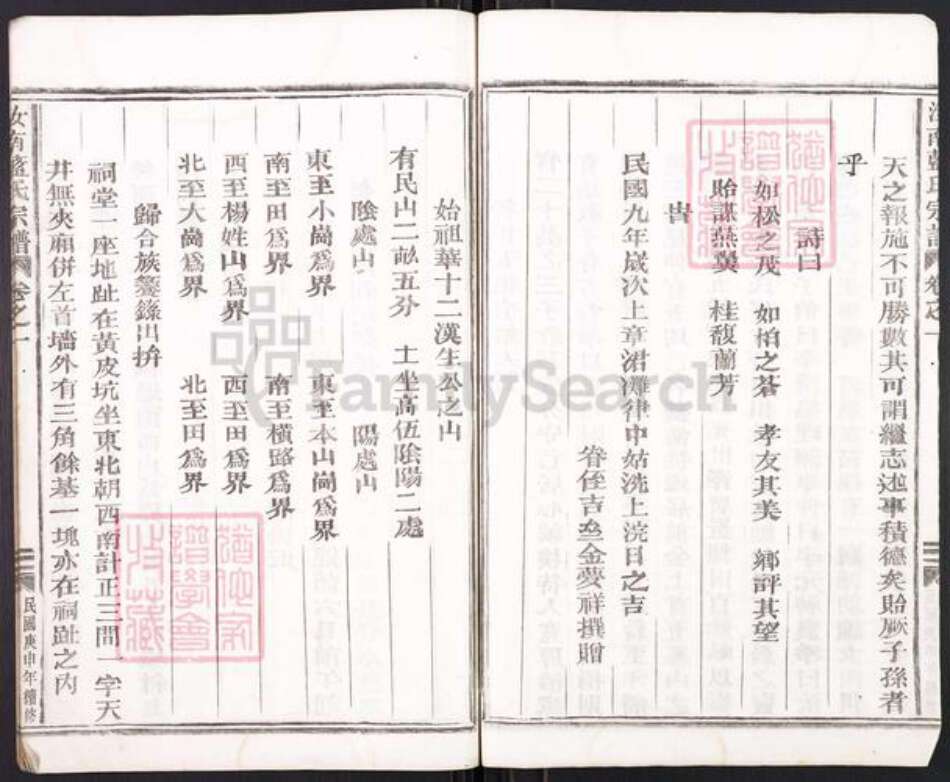 天之報施不可勝數其可謂繼志述事積德矣貽厥子孫者
乎
詩曰
如松之茂　如柏之蒼　孝友其美　鄉評其望
貽謀燕翼　桂馥蘭芳
旹
民國九年歲次上章涒灘律中姑洗上浣日之吉
眷侄吉叁金夢祥撰贈
始祖華十二漢生公之山
有民山二畝五分　土坐高伍陰陽二處
陰處山　陽處山
東至小崗為界　東至本山崗為界
南至田為界　南至橫路為界
西至楊姓山為界　西至田為界
北至大崗為界　北至田為界
歸合族籙出拚
祠堂一座地趾在黃皮坑坐東北朝西南計正三間一字天
井無夾廂併左首墻外有三角餘基一塊亦在祠趾之內
汝南藍氏宗譜　卷之一
民國庚申年續修
FamilySearch